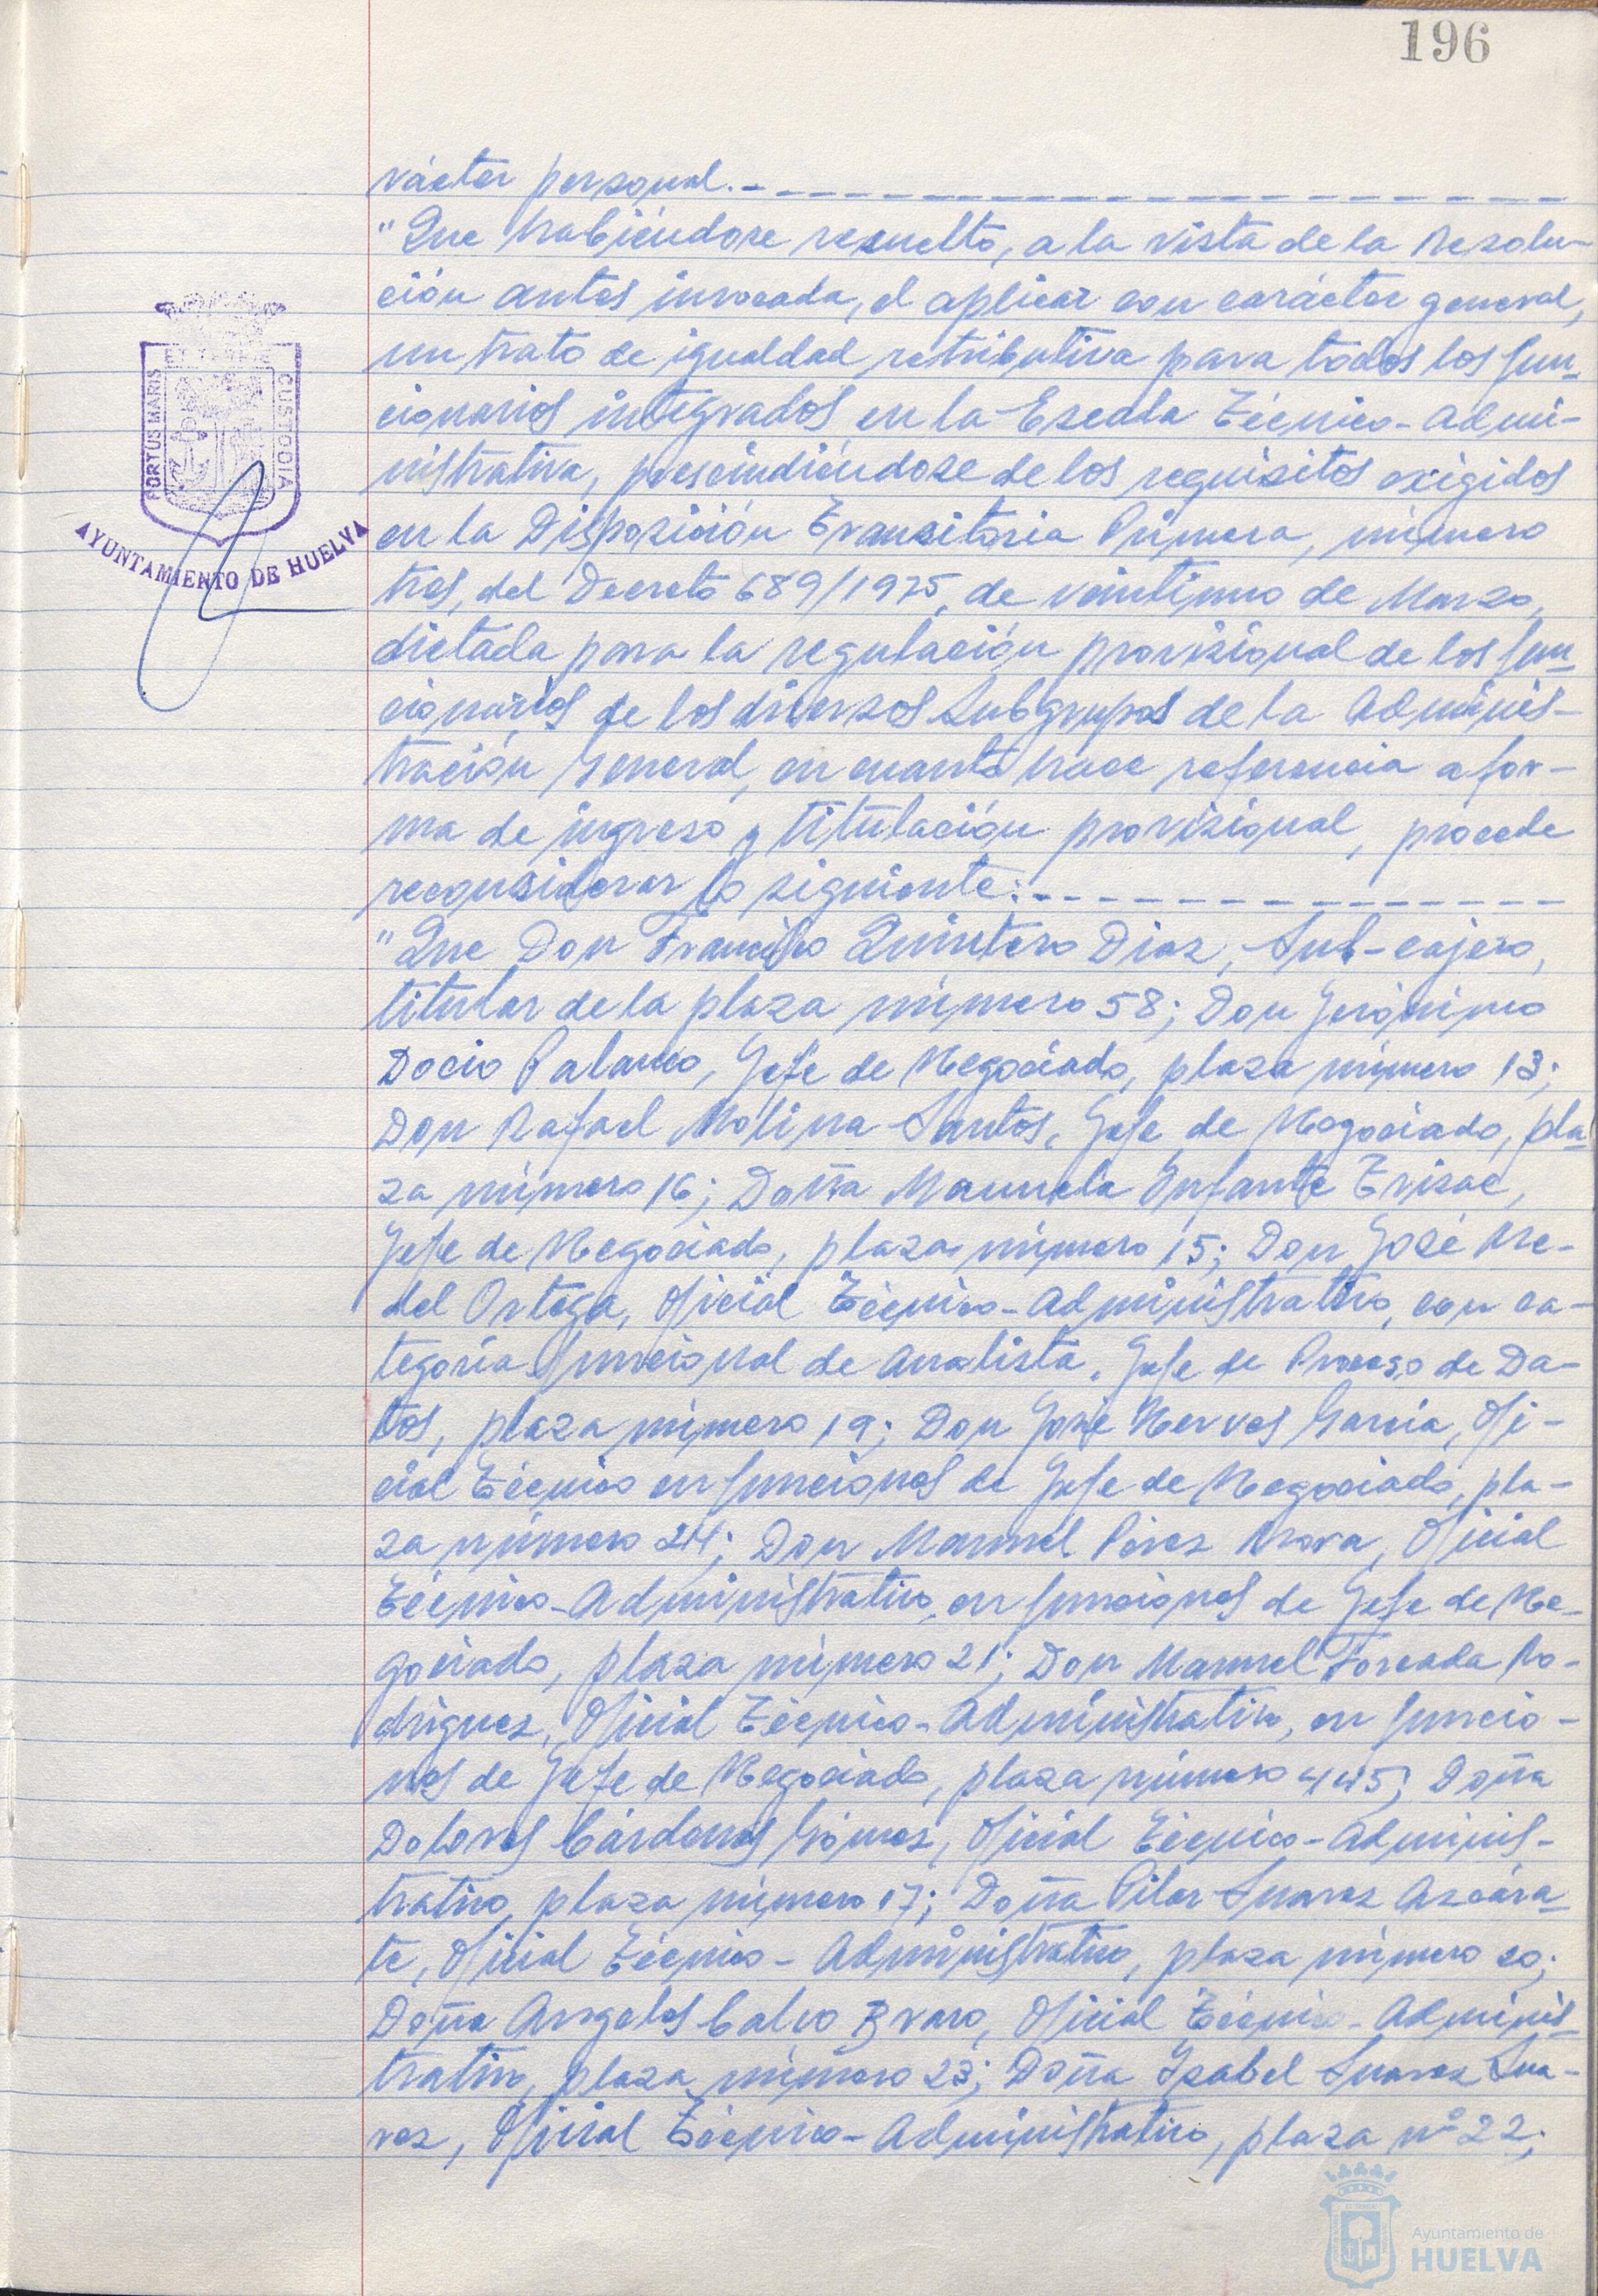 196
rácter personal.-
"Que habiéndose resuelto, a la vista de la Resolu-
ción antes invocada, el aplicar con carácter general,
un trato de igualdad retributiva para todos los fun-
cionarios integrados en la Escala Técnico-Admi-
nistrativa, prescindiéndose de los requisitos exigidos
en la Disposición Transitoria Primera, número
tres, del Decreto 689/1975, de veintiuno de Marzo,
dictada para la regulación provisional de los fun-
cionarios de los diversos Subgrupos de la Adminis-
tración General, en cuanto hace referencia a for-
ma de ingreso y titulación provisional, procede
reconsiderar lo siguiente:-
"Que Don Francisco Quintero Diaz, Sub-cajero,
titular de la plaza número 58; Don Jerónimo
Docio Palanco, Jefe de Negociado, plaza número 13;
Don Rafael Molina Santos, Jefe de Negociado, pla-
za número 16; Doña Manuela Infante Trisac,
Jefe de Negociado, plaza número 15; Don José Me-
del Ortega, Oficial Técnico-Administrativo, con ca-
tegoría funcional de Analista, Jefe de Proceso de Da-
tos, plaza número 19; Don José Nerves García, Ofi-
cial Técnico en funciones de Jefe de Negociado, pla-
za número 24; Don Manuel Pérez Mora, Oficial
Técnico-Administrativo, en funciones de Jefe de Ne-
gociado, plaza número 21; Don Manuel Forcada Ro-
driguez, Oficial Técnico-Administrativo, en funcio-
nes de Jefe de Negociado, plaza número 445; Doña
Dolores Cárdenas Gómez, Oficial Técnico-Adminis-
trativo, plaza número 17; Doña Pilar Suarez Azcára-
te, Oficial Técnico-Administrativo, plaza número 20;
Doña Angeles Calvo Bravo, Oficial Técnico-Adminis-
trativo, plaza número 23; Doña Isabel Suarez Sua-
rez, Oficial Técnico-Administrativo, plaza nº 22;
PORTUS MARIS
ET TERRAE
CUSTODIA
AYUNTAMIENTO DE HUELVA
Ayuntamiento de
HUELVA